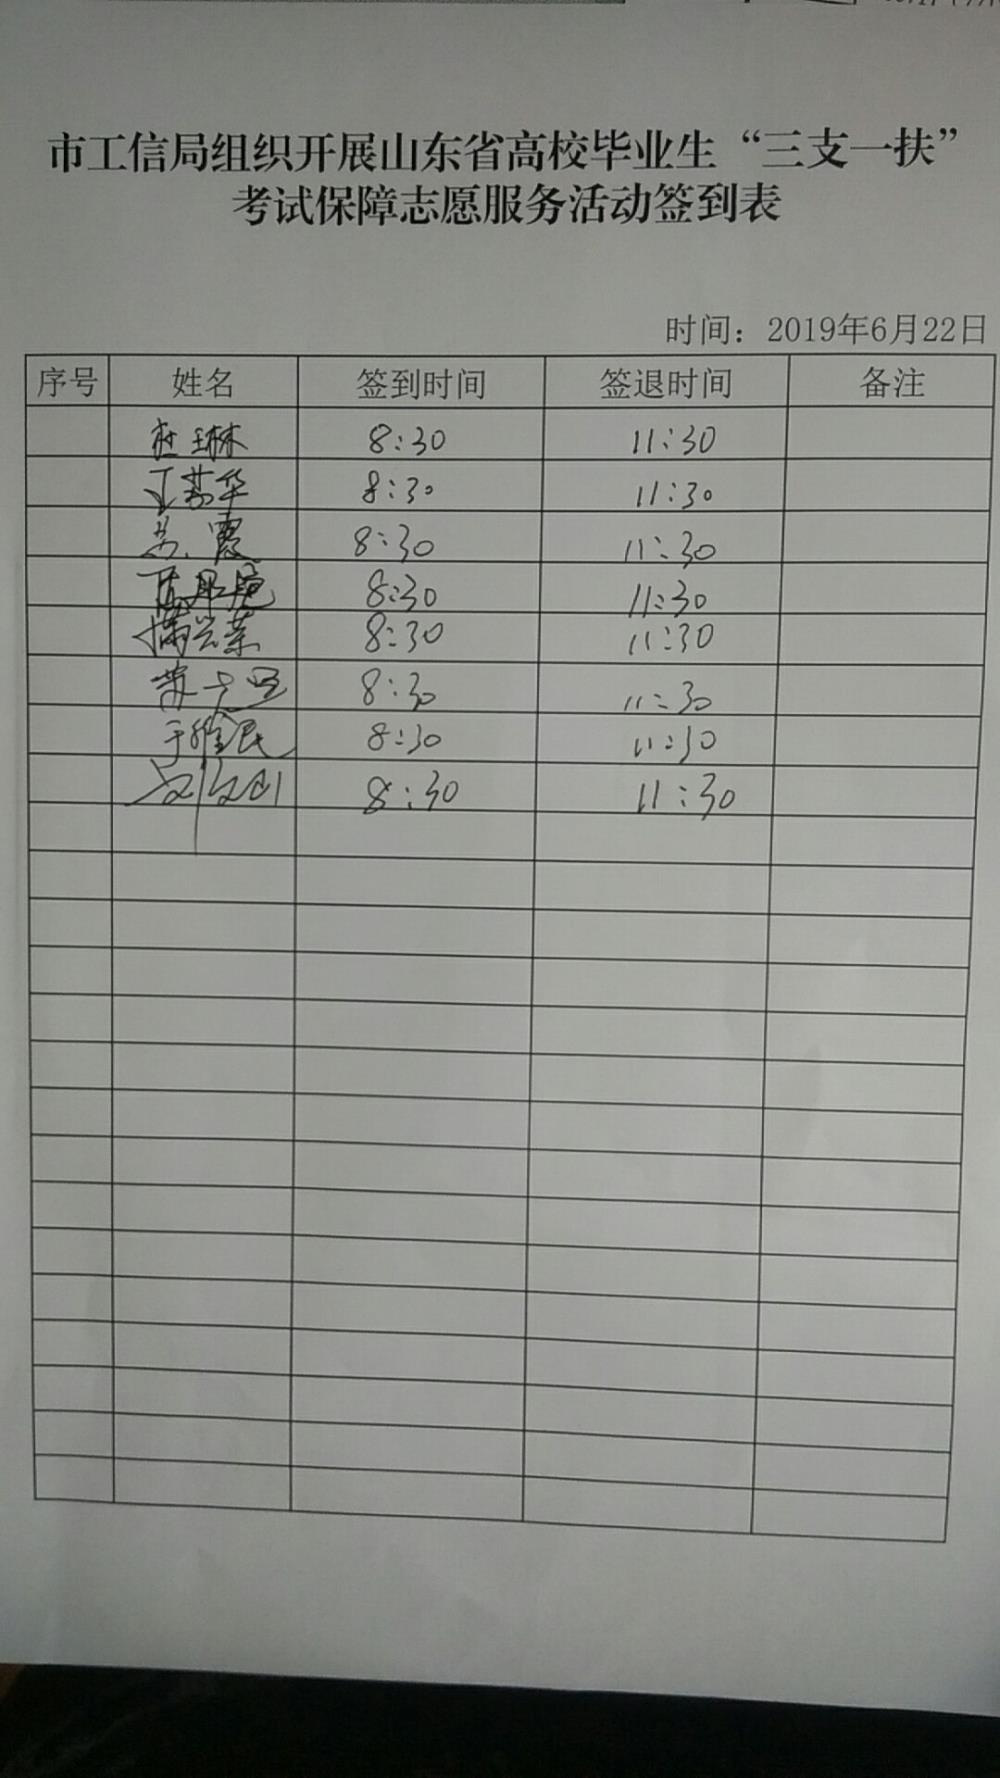 市工信局组织开展山东省高校毕业生“三支一扶”
考试保障志愿服务活动签到表
时间：2019年6月22日
序号 姓名 签到时间 签退时间 备注
杜琳 8:30 11:30
华 8:30 11:30
苏霞 8:30 11:30
陈 8:30 11:30
荣 8:30 11:30
8:30 11:30
于维民 8:30 11:30
刘 8:30 11:30